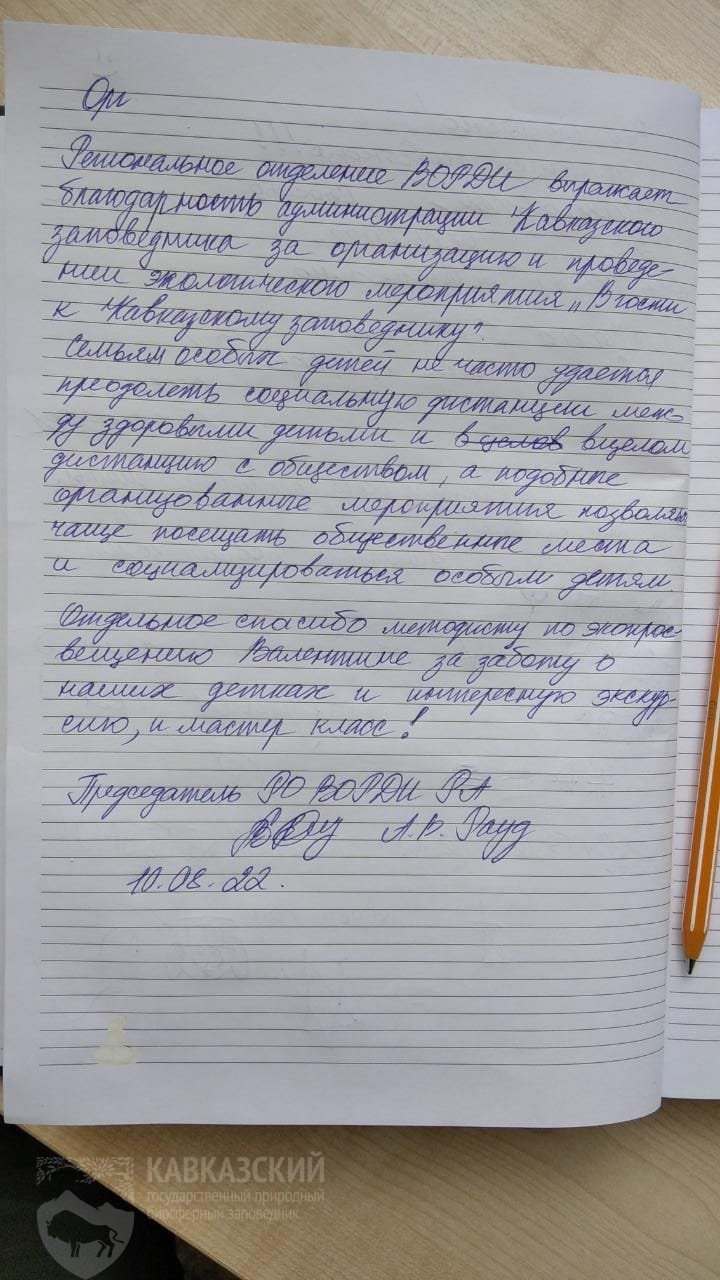 Орг
Региональное отделение ВОРДИ выражает
благодарность администрации Кавказского
заповедника за организацию и проведе-
нии экологического мероприятия „В гости
к Кавказскому заповеднику".
Семьям особых детей не часто удается
преодолеть социальную дистанции меж-
ду здоровыми детьми и в целов вцелом
дистанцию с обществом, а подобные
организованные мероприятия позволяют
чаще посещать общественные места
и социализироваться особым детям.
Отдельное спасибо методисту по экопрос-
вещению Валентине за заботу о
наших детках и интересную экскур-
сию, и мастер класс!
Председатель РО ВОРДИ РА
А.В. Рауд
10.08.22.
КАВКАЗСКИЙ
государственный природный
биосферный заповедник